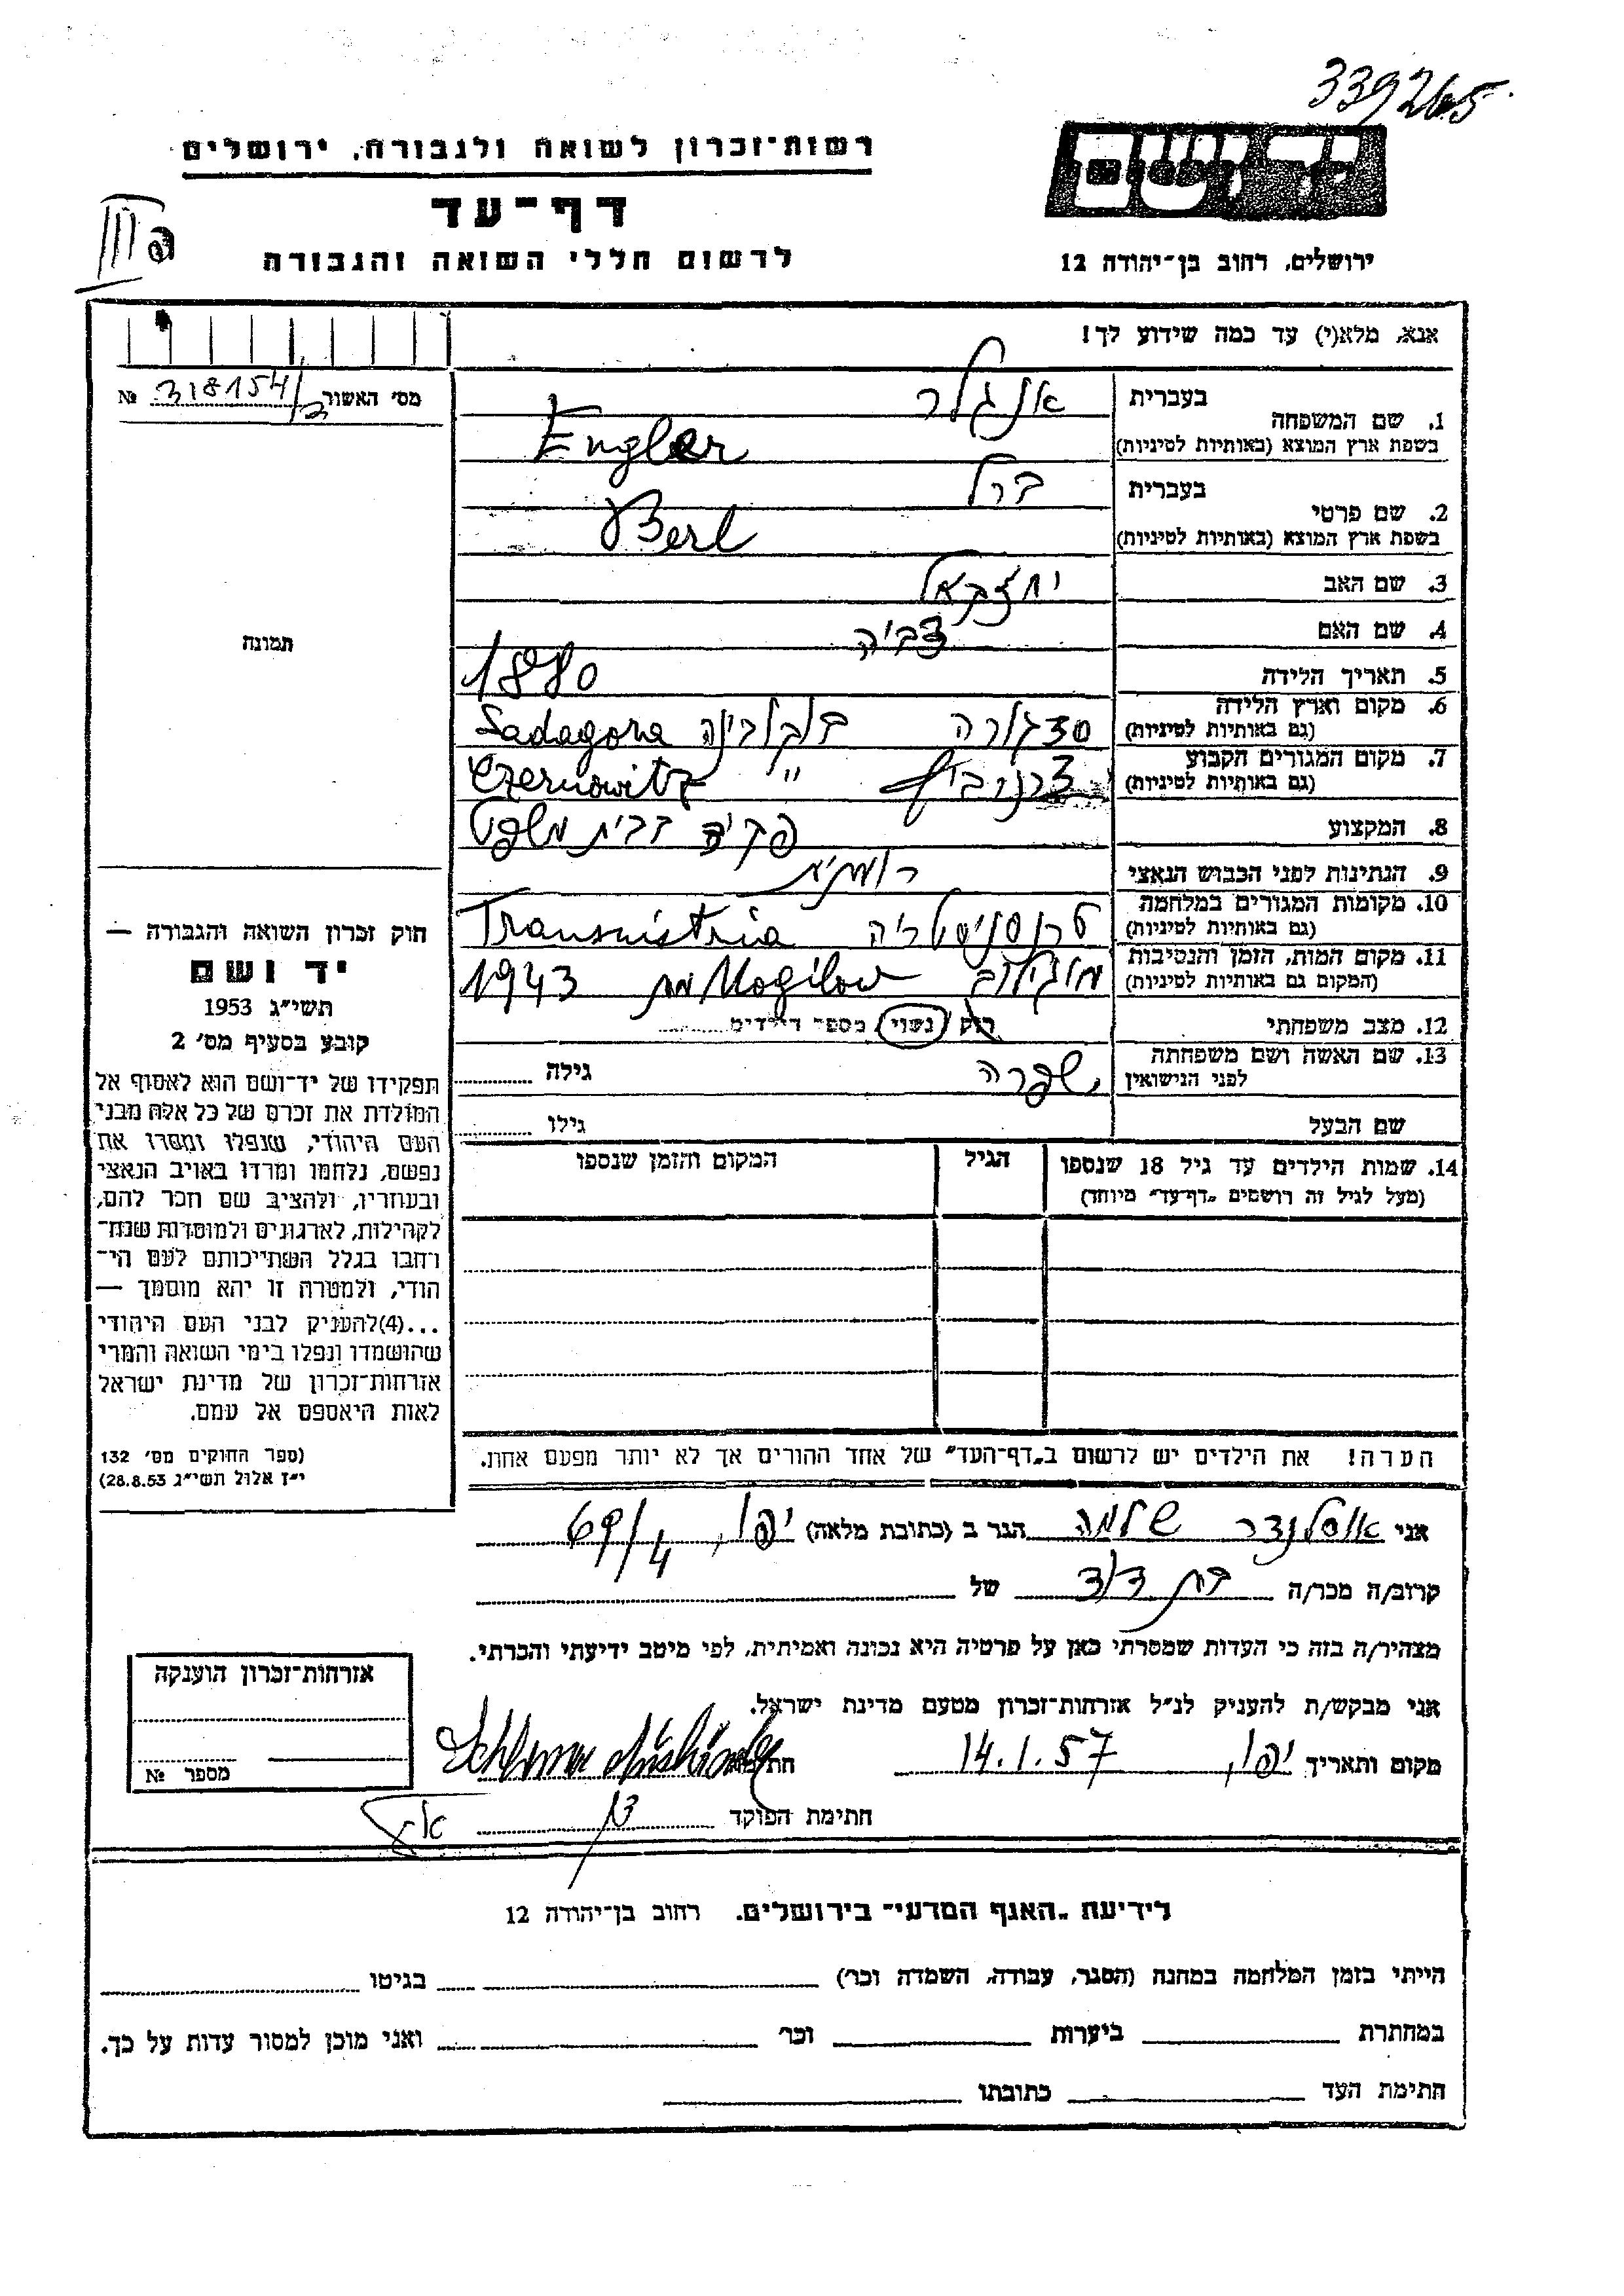 339265
רשות-זכרון לשואה ולגבורה, ירושלים
דף-עד
לרשום חללי השואה והגבורה
יד ושם
ירושלים, רחוב בן-יהודה 12
אנא, מלא(י) עד כמה שידוע לך!
מס' האשור 318154/3 №
בעברית אנגלר
1. שם המשפחה
בשפת ארץ המוצא (באותיות לטיניות) Engler
בעברית ברל
2. שם פרטי
בשפת ארץ המוצא (באותיות לטיניות) Berl
3. שם האב יחזקאל
4. שם האם צביה
5. תאריך הלידה 1880
6. מקום וארץ הלידה
(גם באותיות לטיניות) סדגורה בוקובינה Sadagora
7. מקום המגורים הקבוע
(גם באותיות לטיניות) צרנוביץ " Czernowitz
8. המקצוע פקיד בבית משפט
9. הנתינות לפני הכבוש הנאצי רומנית
10. מקומות המגורים במלחמה
(גם באותיות לטיניות) טרנסניסטריה Transnistria
11. מקום המות, הזמן והנסיבות
(המקום גם באותיות לטיניות) מוגילוב Mogilow מת 1943
12. מצב משפחתי רוק נשוי מספר הילדים
13. שם האשה ושם משפחתה
לפני הנישואין שפרה גילה
שם הבעל גילו
14. שמות הילדים עד גיל 18 שנספו
(מעל לגיל זה רושמים "דף-עד" מיוחד)
הגיל
המקום והזמן שנספו
הערה! את הילדים יש לרשום ב"דף-העד" של אחד ההורים אך לא יותר מפעם אחת.
תמונה
חוק זכרון השואה והגבורה —
יד ושם
תשי"ג 1953
קובע בסעיף מס' 2
תפקידו של יד-ושם הוא לאסוף אל
המולדת את זכרם של כל אלה מבני
העם היהודי, שנפלו ומסרו את
נפשם, נלחמו ומרדו באויב הנאצי
ובעוזריו, ולהציב שם וזכר להם,
לקהילות, לארגונים ולמוסדות שנח-
רחבו בגלל השתייכותם לעם הי-
הודי, ולמטרה זו יהא מוסמך —
...(4)להעניק לבני העם היהודי
שהושמדו ונפלו בימי השואה והמרי
אזרחות-זכרון של מדינת ישראל
לאות היאספם אל עמם.
(ספר החוקים מס' 132
י"ז אלול תשי"ג 28.8.53)
אני אוסלנדר שלמה הגר ב (כתובת מלאה) יפו, 69/4
קרוב/ה מכר/ה בן דוד של
מצהיר/ה בזה כי העדות שמסרתי כאן על פרטיה היא נכונה ואמיתית, לפי מיטב ידיעתי והכרתי.
אני מבקש/ת להעניק לנ"ל אזרחות-זכרון מטעם מדינת ישראל.
מקום ותאריך יפו, 14.1.57 חתימה
חתימת הפוקד
אזרחות-זכרון הוענקה
מספר №
לידיעת "האגף המדעי" בירושלים. רחוב בן-יהודה 12
הייתי בזמן המלחמה במחנה (הסגר, עבודה, השמדה וכר') בגיטו
במחתרת ביערות וכר' ואני מוכן למסור עדות על כך.
חתימת העד כתובתו